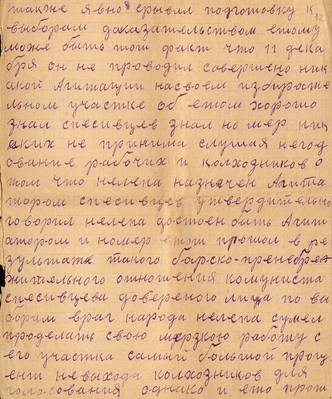 также явно срывал подготовку к
выборам доказательством етому
може быть тот факт что 11 дека
бря он не проводил совершено ник
акой Агитации на своем избирате
льном участке об етом хорошо
знал спесивцев знал но мер ник
аких не принима слушая негод
ование рабочих и колхозников о
том что нелепа назначен Агита
тором спесивцев утвердительно
говорил нелепа достоен быть Агит
атором и номер етот прошол в ре
зультате такого барско-пренебреж
жительного отношения комуниста
спесивцева довереного лица по вы
борам враг народа нелепа сумел
проделать свою мерзкую работу с
его участка самый большой проц
ент невыхода колхозников для
голосования однако и ето прош